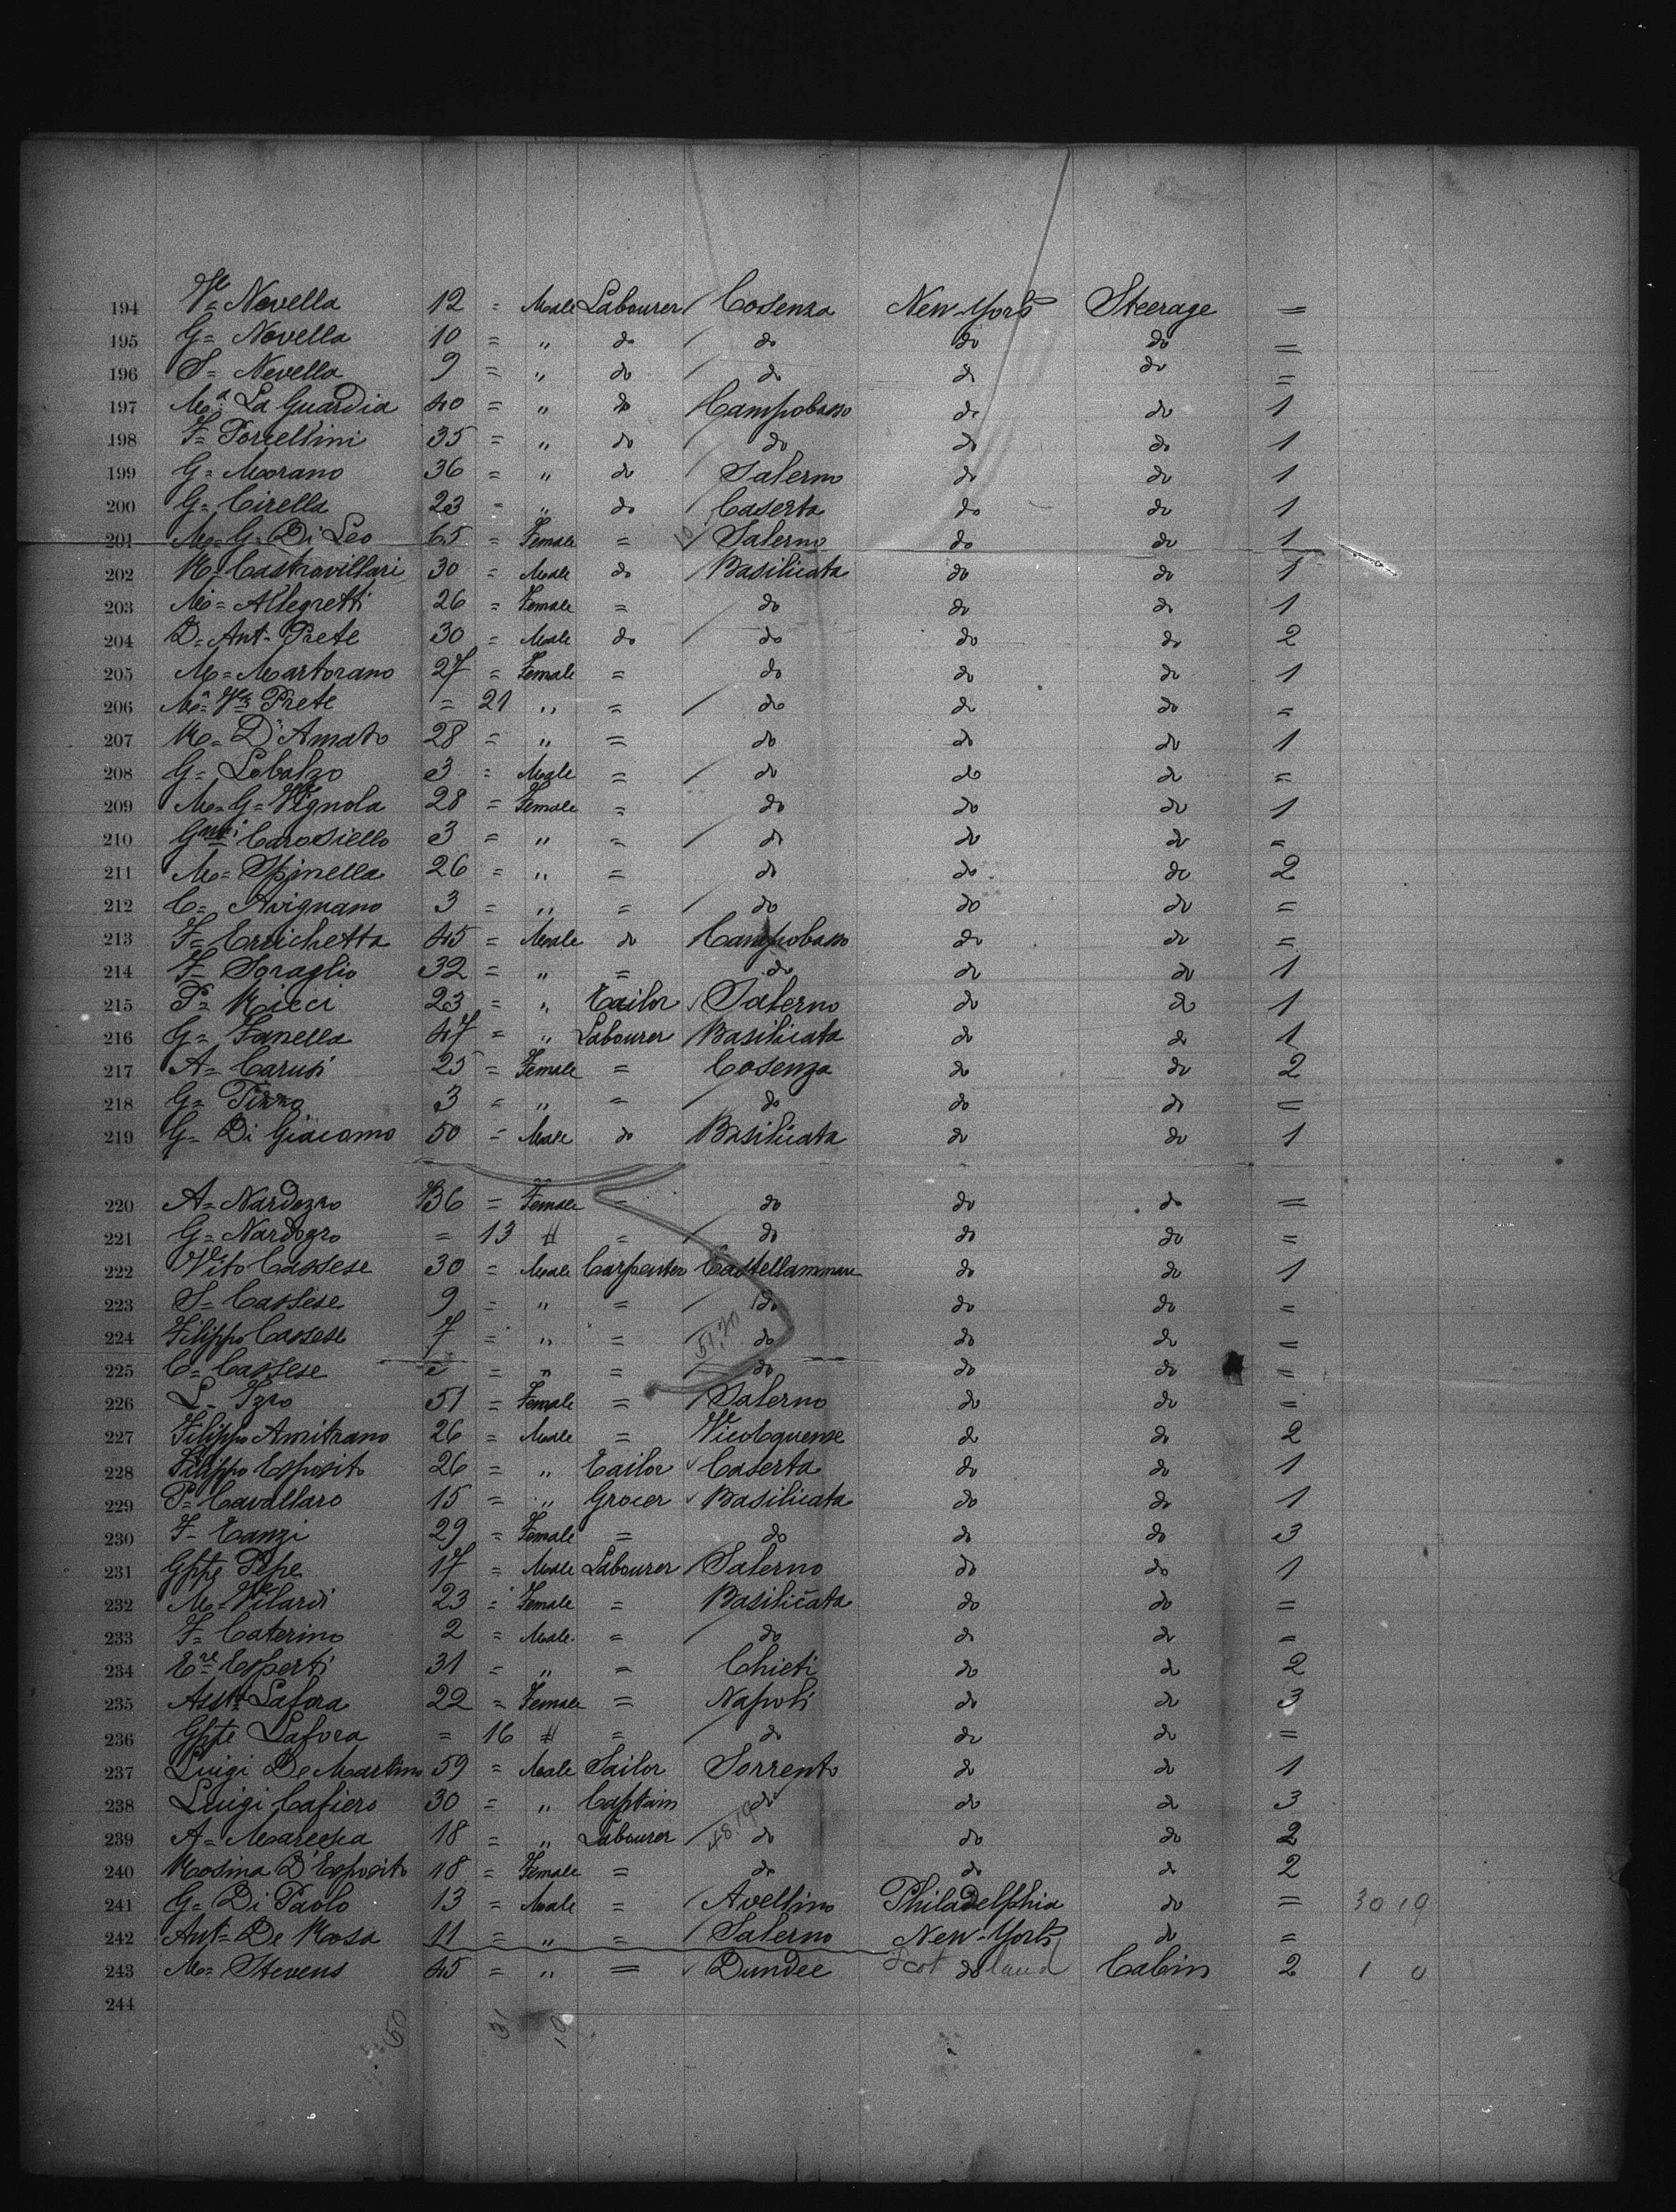 194 Vo= Novella 12 = Male Labourer / Cosenza New-York Steerage =
195 G= Novella 10 = " do / do do do =
196 S= Novella 9 = " do / do do do =
197 Ma La Guardia 40 = " do / Campobasso do do 1
198 F= Porcellini 35 = " do / do do do 1
199 G= Morano 36 = " do / Salerno do do 1
200 G= Cirella 23 = " do / Caserta do do 1
201 M= G= Di Leo 65 = Female = / Salerno do do 1
202 R= Castrovillari 30 = Male do / Basilicata do do 1
203 M= Allegretti 26 = Female = / do do do 1
204 D= Ant= Prete 30 = Male do / do do do 2
205 M= Martorano 27 = Female = do do do 1
206 Prete = 21 " = / do do do =
207 R= D'Amato 28 = " = do do do 1
208 G= Lobalzo 3 = Male = / do do do =
209 M= G= Vignola 28 = Female = do do do 1
210 Carosiello 3 = " = / do do do =
211 M= Spinella 26 = " = do do do 2
212 C= Avignano 3 = " = / do do do =
213 F= Errichetta 45 = Male do / Campobasso do do =
214 F= Soraglio 32 = " = do do do 1
215 P= Ricci 23 = " Tailor / Salerno do do 1
216 G= Zanella 47 = " Labourer / Basilicata do do 1
217 A= Carusi 25 = Female = Cosenza do do 2
218 G= Pizzo 3 = " = / do do do =
219 G= Di Giacomo 50 = Male do / Basilicata do do 1
220 A= Nardozro 36 = Female = do do do =
221 G= Nardozro = 13 " = / do do do =
222 Vito Cassese 30 = Male Carpenter Castellammare do do 1
223 S= Cassese 9 = " = / do do do =
224 Filippo Cassese 7 = " = do do do =
225 C= Cassese = " = / do do do =
226 L= Izro 51 = Female = / Salerno do do =
227 Filippo Amitrano 26 = Male = Vico Equense do do 2
228 Filippo Esposito 26 = " Tailor Caserta do do 1
229 P= Cavallaro 15 = " Grocer Basilicata do do 1
230 F= Tanzi 29 = Female = do do do 3
231 Gppe Pepe 17 = Male Labourer / Salerno do do 1
232 M= Vilardi 23 = Female = Basilicata do do =
233 F= Caterino 2 = Male = / do do do =
234 Esperti 31 = " = Chieti do do 2
235 Lafora 22 = Female = Napoli do do 3
236 Gppe Lafora = 16 " = / do do do =
237 Luigi De Martino 59 = Male Sailor Sorrento do do 1
238 Luigi Cafiero 30 = " Captain do do do 3
239 A= Maresca 18 = " Labourer do do do 2
240 Rosina D'Esposito 18 = Female = do do do 2
241 G= Di Paolo 13 = Male = / Avellino Philadelphia do = 30 19
242 Ant= De Rosa 11 = " = / Salerno New-York do =
243 M= Stevens 45 = " = Dundee Scotland do Cabin 2 1 0
244